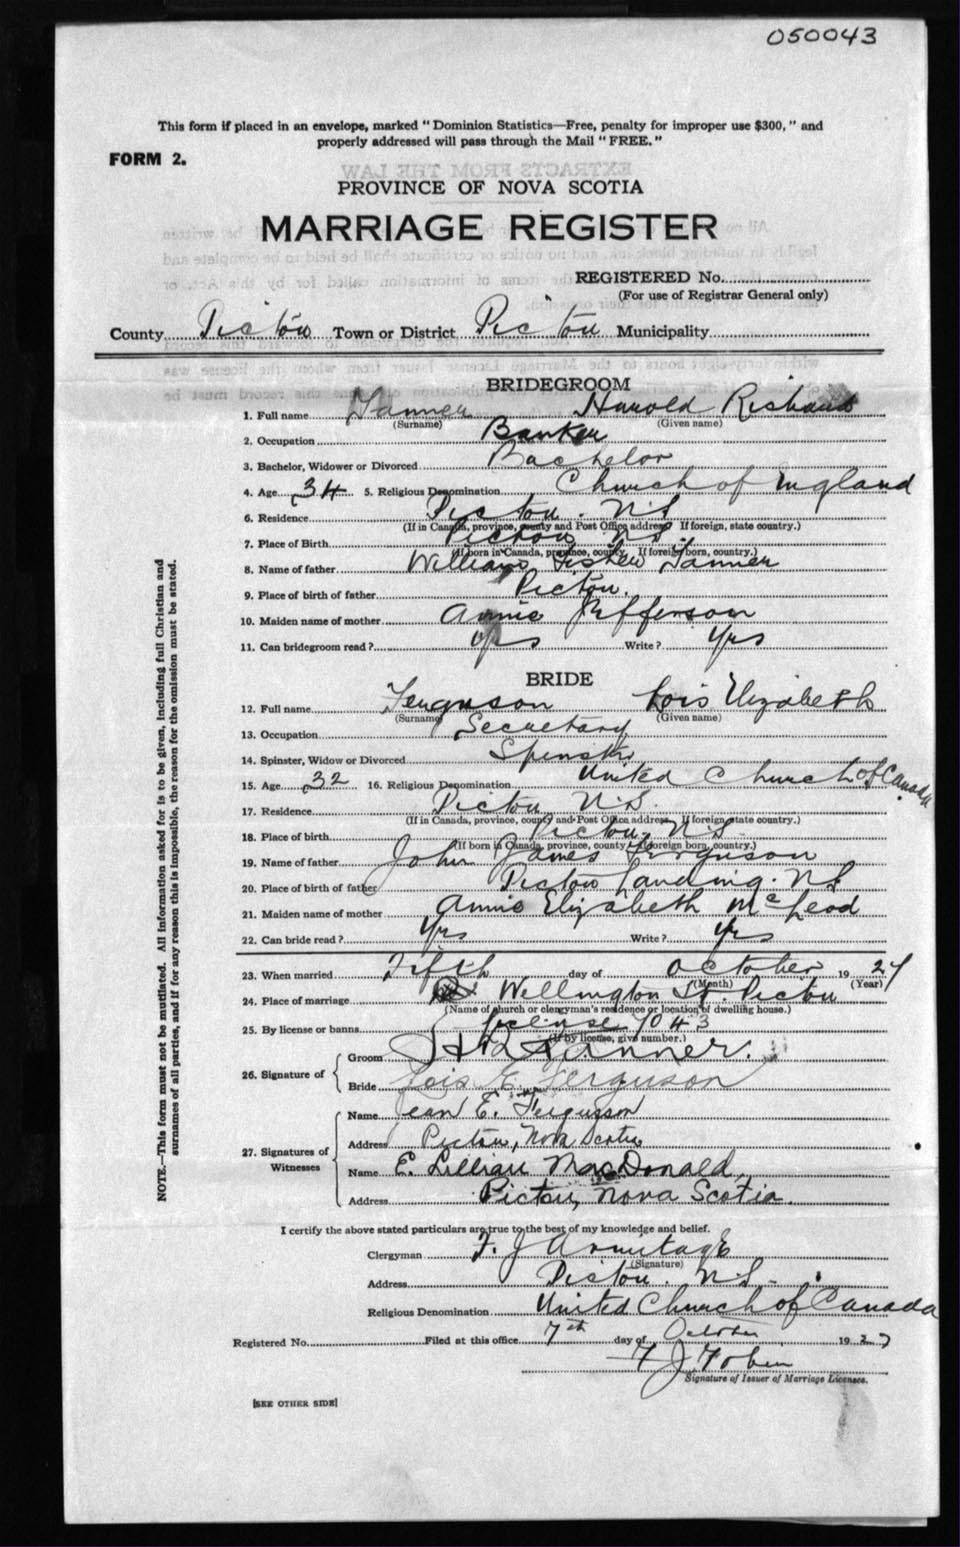 050043
This form if placed in an envelope, marked "Dominion Statistics—Free, penalty for improper use $300," and
properly addressed will pass through the Mail "FREE."
FORM 2.
EXTRACTS FROM THE LAW
PROVINCE OF NOVA SCOTIA
MARRIAGE REGISTER
REGISTERED No.
(For use of Registrar General only)
County Pictou Town or District Pictou Municipality
BRIDEGROOM
1. Full name Tanner Harold Richard
(Surname) (Given name)
2. Occupation Banker
3. Bachelor, Widower or Divorced Bachelor
4. Age 34 5. Religious Denomination Church of England
6. Residence Pictou. N.S
(If in Canada, province, county and Post Office address If foreign, state country.)
7. Place of Birth Pictou N.S.
(If born in Canada, province, county, If foreign born, country.)
8. Name of father William Fisher Tanner
9. Place of birth of father Pictou.
10. Maiden name of mother Annie Jefferson
11. Can bridegroom read? Yes Write? Yes
BRIDE
12. Full name Ferguson Lois Elizabeth
(Surname) (Given name)
13. Occupation Secretary
14. Spinster, Widow or Divorced Spinster
15. Age 32 16. Religious Denomination United Church of Canada
17. Residence Pictou N.S.
(If in Canada, province, county and Post Office address, If foreign state country.)
18. Place of birth Pictou, N.S
(If born in Canada, province, county If foreign born, country.)
19. Name of father John James Ferguson
20. Place of birth of father Pictou Landing. N.S
21. Maiden name of mother Annie Elizabeth McLeod
22. Can bride read? Yes Write? Yes
23. When married Fifth day of October 1927
(Month) (Year)
24. Place of marriage Wellington St. Pictou
(Name of church or clergyman's residence or location of dwelling house.)
25. By license or banns license 7043
(If by license, give number.)
26. Signature of
Groom H R Tanner.
Bride Lois E. Ferguson
27. Signatures of Witnesses
Name Jean E. Ferguson
Address Pictou, Nova Scotia
Name E. Lillian MacDonald
Address Pictou, Nova Scotia.
I certify the above stated particulars are true to the best of my knowledge and belief.
Clergyman F. J Armitage
(Signature)
Address Pictou. N.S.
Religious Denomination United Church of Canada
Registered No. Filed at this office 7th day of October 1927
F J Tobin
Signature of Issuer of Marriage Licenses.
[SEE OTHER SIDE]
NOTE.—This form must not be mutilated. All information asked for is to be given, including full Christian and
surnames of all parties, and if for any reason this is impossible, the reason for the omission must be stated.